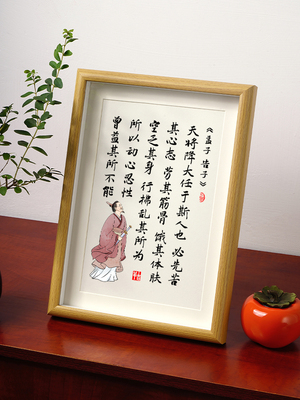 《孟子 告子》
天将降大任于斯人也 必先苦
其心志 劳其筋骨 饿其体肤
空乏其身 行拂乱其所为
所以动心忍性
曾益其所不能